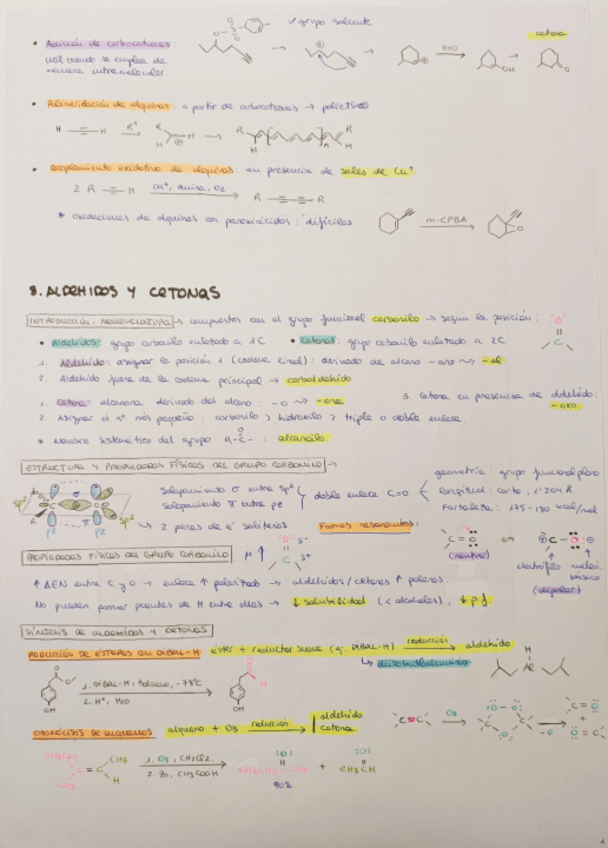 ✓ grupo saliente
• Adición de carbocationes:
útil cuando se emplea de
manera intramolecular
cetona
H₂O
OH
O
• Polimerización de alquinos: a partir de carbocationes → polietinos
H ≡ H R⁺ R H → R H R H n
• Acoplamiento oxidativo de alquinos: en presencia de sales de Cu⁺
2 R ≡ H Cu⁺, amina, O₂ R ≡ ≡ R
* Oxidaciones de alquinos con peroxiácidos: difíciles. m-CPBA O
8. ALDEHIDOS Y CETONAS
INTRODUCCIÓN, NOMENCLATURA → compuestos con el grupo funcional carbonilo → según la posición:
• Aldehídos: grupo carbonilo enlazado a 1C • Cetonas: grupo carbonilo enlazado a 2C
1. Aldehído: asignar la posición 1 (cadena lineal): derivado de alcano -ano ~> -al
2. Aldehído fuera de la cadena principal → carbaldehído.
1. Cetona: alcanona derivado del alcano: -o ~> -ona 3. Cetona en presencia de aldehído:
-oxo.
2. Asignar el nº más pequeño: carbonilo > hidroxilo > triple o doble enlace.
* Nombre sistemático del grupo R-C- : alcanoilo.
ESTRUCTURA Y PROPIEDADES FÍSICAS DEL GRUPO CARBONILO →
Solapamiento σ entre sp²
Solapamiento π entre pz
doble enlace C=O
geometría: grupo funcional plano
longitud: corto, 1'204 Å
Fortaleza: 175-180 kcal/mol
↳ 2 pares de e⁻ solitarios
Formas resonantes:
(neutro)
electrófilo
(dipolar)
PROPIEDADES FÍSICAS DEL GRUPO CARBONILO μ ↑ δ⁻ δ⁺
↑ ΔEN entre C y O → enlace ↑ polarizado → aldehídos/cetonas ↑ polares.
No pueden formar puentes de H entre ellos → ↓ solubilidad (< alcoholes), ↓ p.f.
SÍNTESIS DE ALDEHIDOS Y CETONAS
REDUCCIÓN DE ÉSTERES CON DIBAL-H éster + reductor suave (ej. DIBAL-H) reducción aldehído
↳ diisobutilaluminio
H
Al
1. DIBAL-H, tolueno, -78ºC
2. H⁺, H₂O
OH OH
OZONÓLISIS DE ALQUENOS alqueno + O₃ reducción aldehído
cetona
C=C O₃
CH₃CH₂ CH₃
C = C
CH₃ H
1. O₃, CH₂Cl₂
2. Zn, CH₃COOH
CH₃CH₂C-CH₃ + CH₃CH
90%